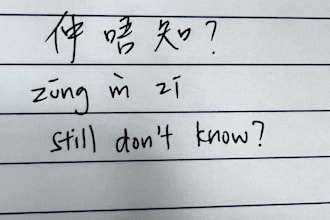 仲唔知?
zūng m̀ zī
still don't know?